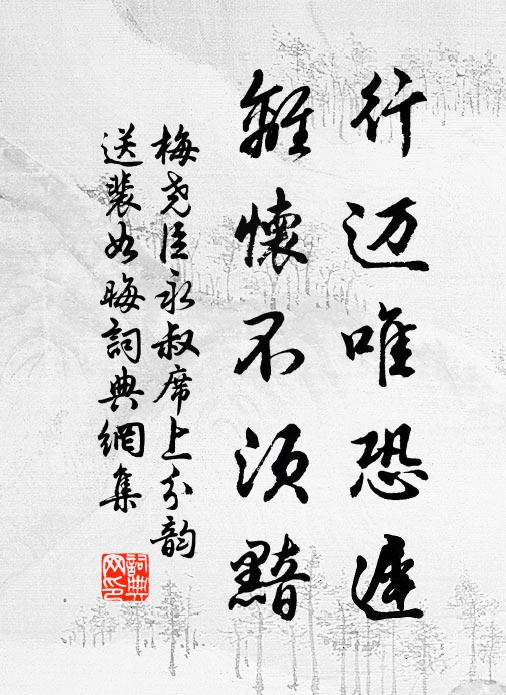 行迈唯恐遲
離懷不須黯
梅尧臣永叔席上分韵
送裴如晦詞典網集
詞典网印